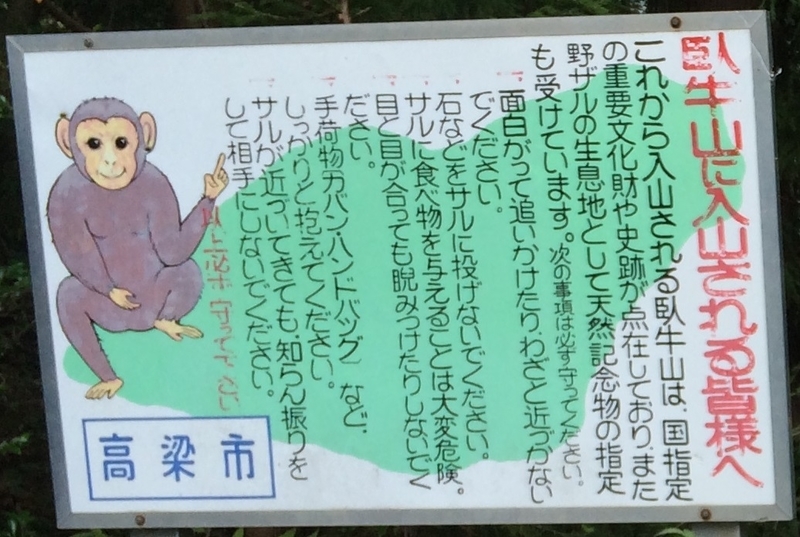 臥牛山に入山される皆様へ
これから入山される臥牛山は、国指定
の重要文化財や史跡が点在しており、また
野ザルの生息地として天然記念物の指定
も受けています。次の事項は必ず守ってください。
一 面白がって追いかけたり、わざと近づかない
でください。
一 石などをサルに投げないでください。
一 サルに食べ物を与えることは大変危険。
一 目と目が合っても睨みつけたりしないでく
ださい。
一 手荷物(カバン・ハンドバッグ)など、
しっかりと抱えてください。
一 サルが近づいてきても、知らん振りを
して相手にしないでください。
以上必ず守ってください
高梁市